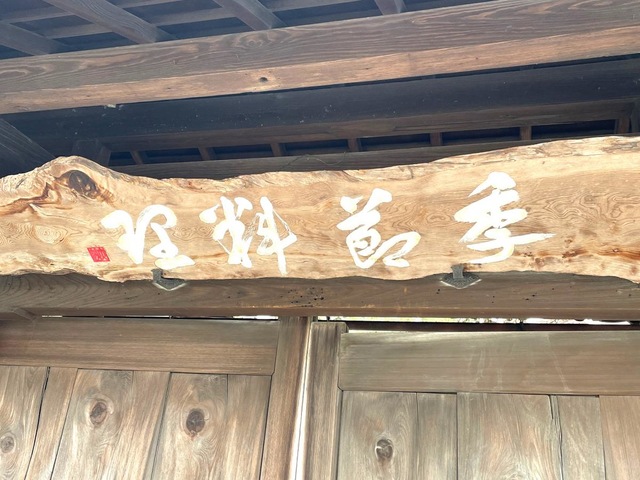 季節料理